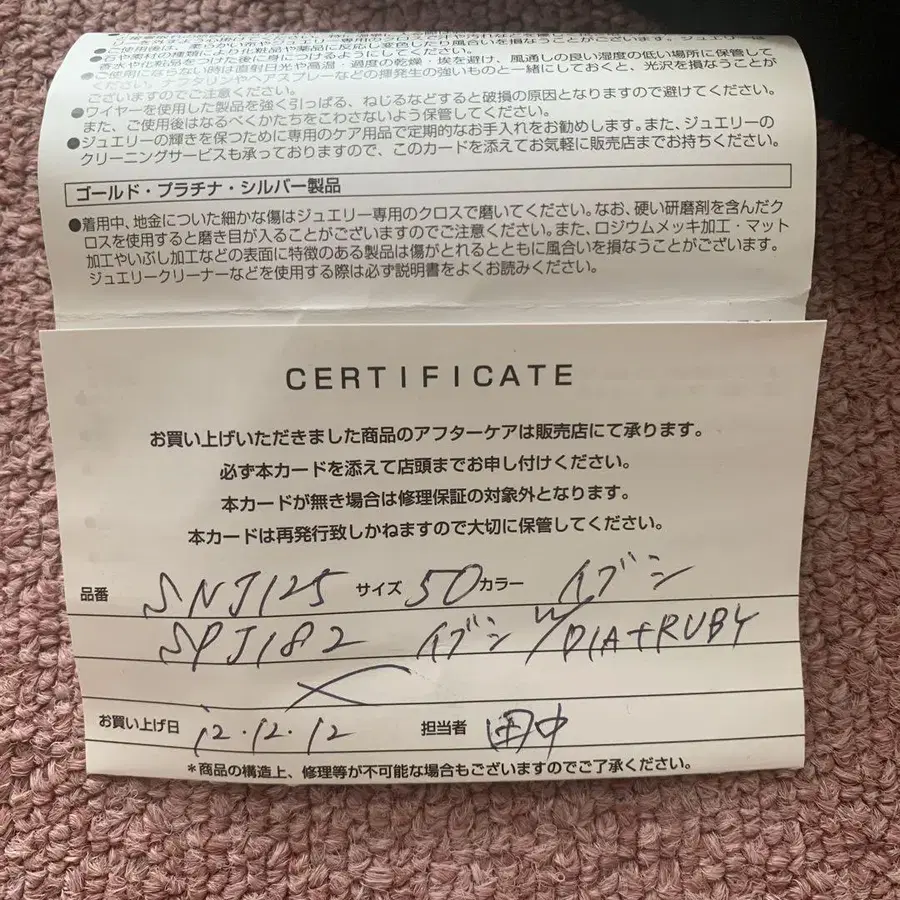 ●ご使用後は、柔らかい布やジュエリー専用のクロスで汗や汚れなどを
●石や素材の種類により化粧品や薬品に反応し変色したり風合いを損なうことがございます。ジュエリーは
香水や化粧品をつけた後に身につけるようにしてください。
●ご使用にならない時は直射日光や高温・過度の乾燥・埃を避け、風通しの良い湿度の低い場所に保管して
ください。ナフタリンやヘアスプレーなどの揮発性の強いものと一緒にしておくと、光沢を損なうことが
ございますのでご注意ください。
●ワイヤーを使用した製品を強く引っぱる、ねじるなどすると破損の原因となりますので避けてください。
また、ご使用後はなるべくかたちをこわさないよう保管してください。
●ジュエリーの輝きを保つために専用のケア用品で定期的なお手入れをお勧めします。また、ジュエリーの
クリーニングサービスも承っておりますので、このカードを添えてお気軽に販売店までお持ちください。
ゴールド・プラチナ・シルバー製品
●着用中、地金についた細かな傷はジュエリー専用のクロスで磨いてください。なお、硬い研磨剤を含んだク
ロスを使用すると磨き目が入ることがございますのでご注意ください。また、ロジウムメッキ加工・マット
加工やいぶし加工などの表面に特徴のある製品は傷がとれるとともに風合いを損なうことがございます。
ジュエリークリーナーなどを使用する際は必ず説明書をよくお読みください。
CERTIFICATE
お買い上げいただきました商品のアフターケアは販売店にて承ります。
必ず本カードを添えて店頭までお申し付けください。
本カードが無き場合は修理保証の対象外となります。
本カードは再発行致しかねますので大切に保管してください。
品番 SNJ125 サイズ 50 カラー イブシ
SPJ182 イブシ w/DIA+RUBY
お買い上げ日 12.12.12 担当者 田中
＊商品の構造上、修理等が不可能な場合もございますのでご了承ください。